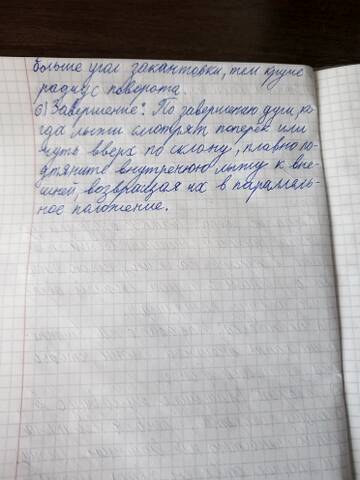 больше угол закантовки, тем круче
радиус поворота.
6) Завершение: По завершению дуги, ко-
гда лыжи смотрят поперек или
чуть вверх по склону, плавно по-
дтяните внутреннюю лыжу к вне-
шней, возвращая их в параллель-
ное положение.